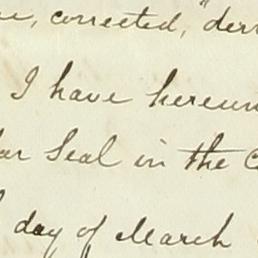 corrected,
I have hereun
Seal in the
day of March